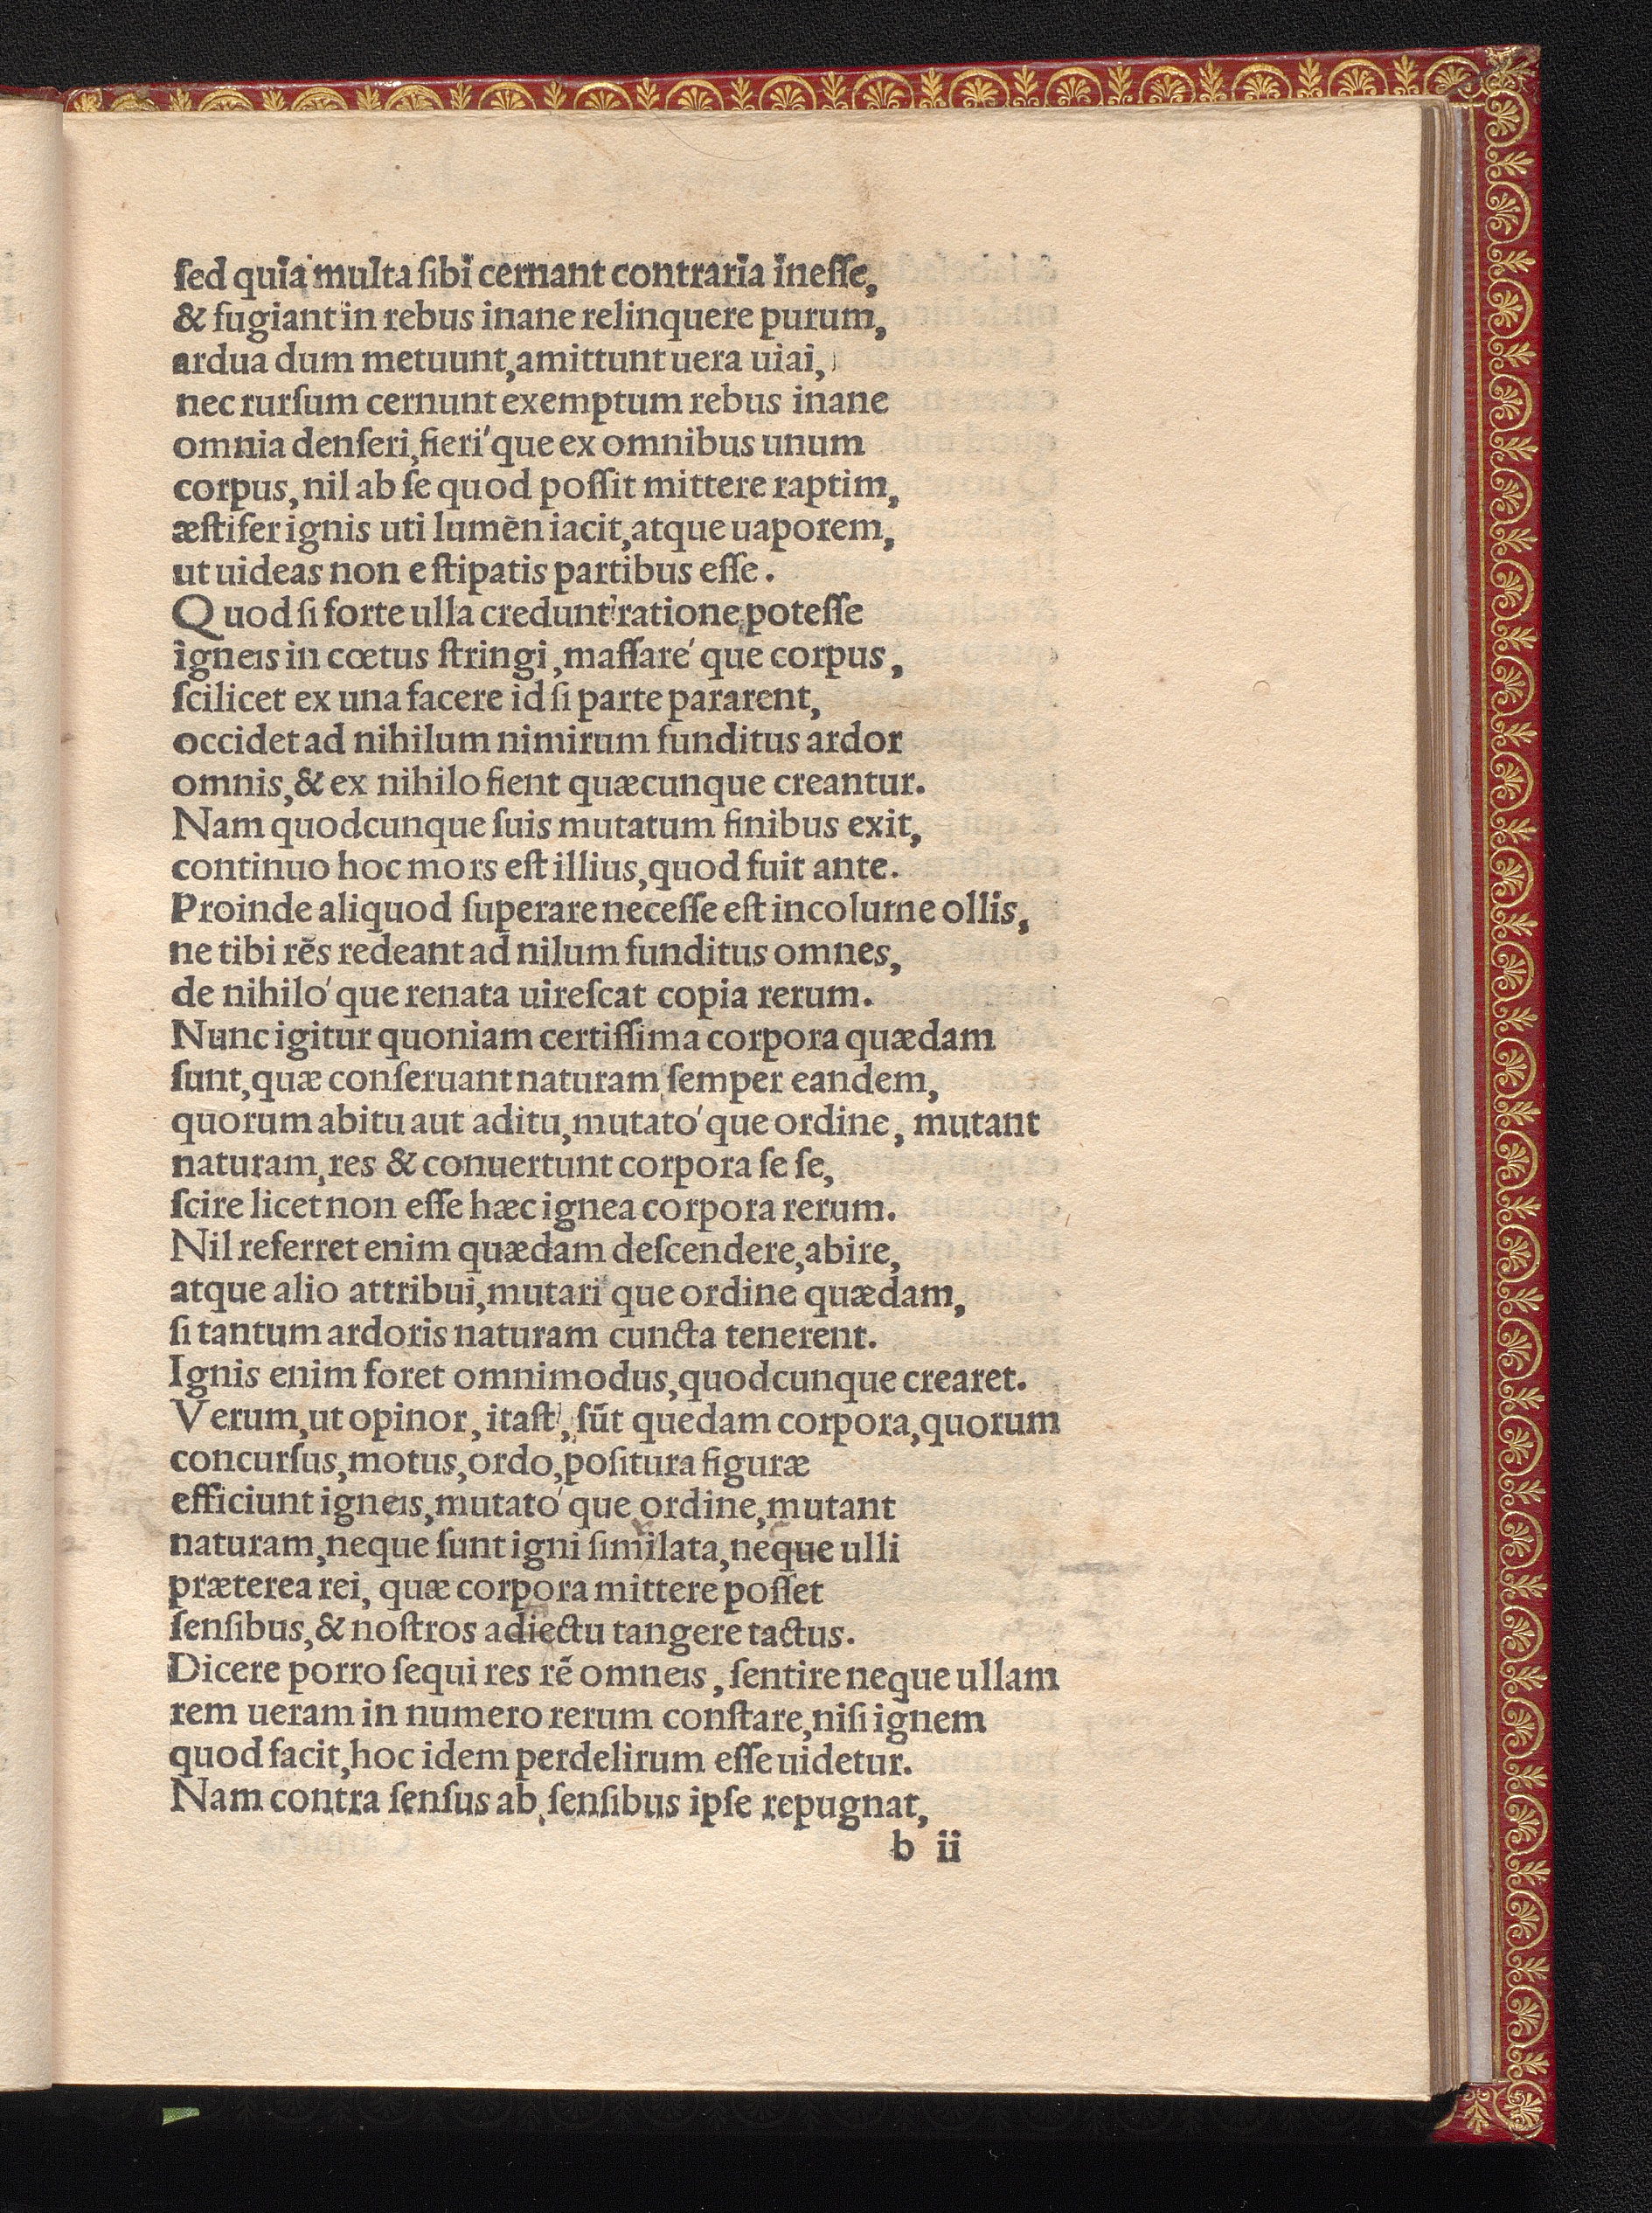 ſed quia multa ſibi cernant contraria ineſſe,
& fugiant in rebus inane relinquere purum,
ardua dum metuunt, amittunt uera uiai,
nec rurſum cernunt exemptum rebus inane
omnia denſeri, fieri'que ex omnibus unum
corpus, nil ab ſe quod poſſit mittere raptim,
æſtifer ignis uti lumēn iacit, atque uaporem,
ut uideas non e ſtipatis partibus eſſe.
Quod ſi forte ulla credunt ratione poteſſe
igneis in cœtus ſtringi, maſſare'que corpus,
ſcilicet ex una facere id ſi parte pararent,
occidet ad nihilum nimirum funditus ardor
omnis, & ex nihilo fient quæcunque creantur.
Nam quodcunque ſuis mutatum finibus exit,
continuo hoc mors eſt illius, quod fuit ante.
Proinde aliquod ſuperare neceſſe eſt incolume ollis,
ne tibi rēs redeant ad nilum funditus omnes,
de nihilo'que renata uireſcat copia rerum.
Nunc igitur quoniam certiſſima corpora quædam
ſunt, quæ conſeruant naturam ſemper eandem,
quorum abitu aut aditu, mutato'que ordine, mutant
naturam, res & conuertunt corpora ſe ſe,
ſcire licet non eſſe hæc ignea corpora rerum.
Nil referret enim quædam deſcendere, abire,
atque alio attribui, mutari'que ordine quædam,
ſi tantum ardoris naturam cuncta tenerent.
Ignis enim foret omnimodus, quodcunque crearet.
Verum, ut opinor, itaſt', ſūt quedam corpora, quorum
concurſus, motus, ordo, poſitura figuræ
efficiunt igneis, mutato'que ordine, mutant
naturam, neque ſunt igni ſimilata, neque ulli
præterea rei, quæ corpora mittere poſſet
ſenſibus, & noſtros adiectu tangere tactus.
Dicere porro ſequi res rē omneis, ſentire neque ullam
rem ueram in numero rerum conſtare, niſi ignem
quod facit, hoc idem perdelirum eſſe uidetur.
Nam contra ſenſus ab ſenſibus ipſe repugnat,
b ii